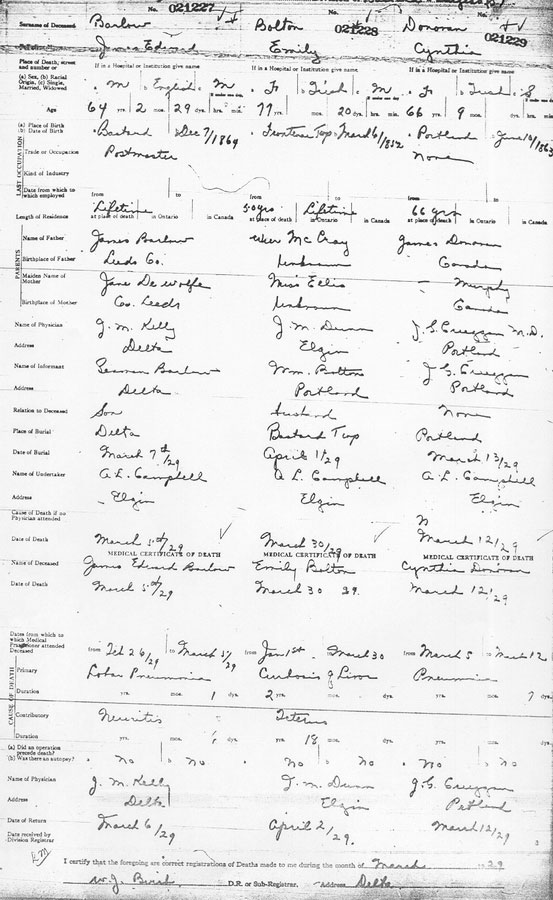 No. 021227 No. 021228 No. 021229
Surname of Deceased Barlow Bolton Donovan
James Edward Emily Cynthia
Place of Death, street and number or If in a Hospital or Institution give name If in a Hospital or Institution give name If in a Hospital or Institution give name
(a) Sex, (b) Racial Origin, (c) Single, Married, Widowed a M b English c M a F b Irish c M a F b Irish c S
Age 64 yrs. 2 mos. 29 dys. hrs. min. 77 yrs. mos. 20 dys. hrs. min. 66 yrs. 9 mos. dys. hrs. min.
(a) Place of Birth
(b) Date of Birth a Bastard b Dec 7/1864 a Frontenac Twp b March 6/1852 a Portland b June 14/1863
LAST OCCUPATION
Trade or Occupation Postmaster None
Kind of Industry
Date from which to which employed from to from to from to
Length of Residence Lifetime at place of death in Ontario in Canada 50 yrs at place of death Lifetime in Ontario in Canada 66 yrs at place of death in Ontario in Canada
PARENTS
Name of Father James Barlow McCray James Donovan
Birthplace of Father Leeds Co. Unknown Canada
Maiden Name of Mother Jane De wolfe Miss Ellis – Murphy
Birthplace of Mother Co. Leeds Unknown Canada
Name of Physician J. M. Kelly J. M. Dunn J. G. M.D.
Address Delta Elgin Portland
Name of Informant Barlow Wm. Bolton J. G.
Address Delta Portland Portland
Relation to Deceased Son Husband None
Place of Burial Delta Bastard Twp Portland
Date of Burial March 7th/29 April 1/29 March 13/29
Name of Undertaker A. L. Campbell A. L. Campbell A. L. Campbell
Address Elgin Elgin Elgin
Cause of Death if no Physician attended
Date of Death March 5th/29 March 30/29 March 12/29
MEDICAL CERTIFICATE OF DEATH MEDICAL CERTIFICATE OF DEATH MEDICAL CERTIFICATE OF DEATH
Name of Deceased James Edward Barlow Emily Bolton Cynthia Donovan
Date of Death March 5th/29 March 30 29. March 12/29
Dates from which to which Medical Practitioner attended Deceased from Feb 26/29 to March 5/29 from Jan 1st to March 30 from March 5 to March 12
CAUSE OF DEATH
Primary Lobar Pneumonia Cirrhosis of Liver Pneumonia
Duration yrs. mos. 1 dys. 2 yrs. mos. dys. yrs. mos. 7 dys.
Contributory Neuritis Icterus
Duration yrs. mos. dys. yrs. 18 mos. dys. yrs. mos. dys.
(a) Did an operation precede death?
(b) Was there an autopsy? a no b no a No b No a No b no
Name of Physician J. M. Kelly J. M. Dunn J. G.
Address Delta Elgin Portland
Date of Return March 6/29 April 2/29. March 12/29
Date received by Division Registrar
I certify that the foregoing are correct registrations of Deaths made to me during the month of March 1929
W. J. Birch D.R. or Sub-Registrar. Address Delta